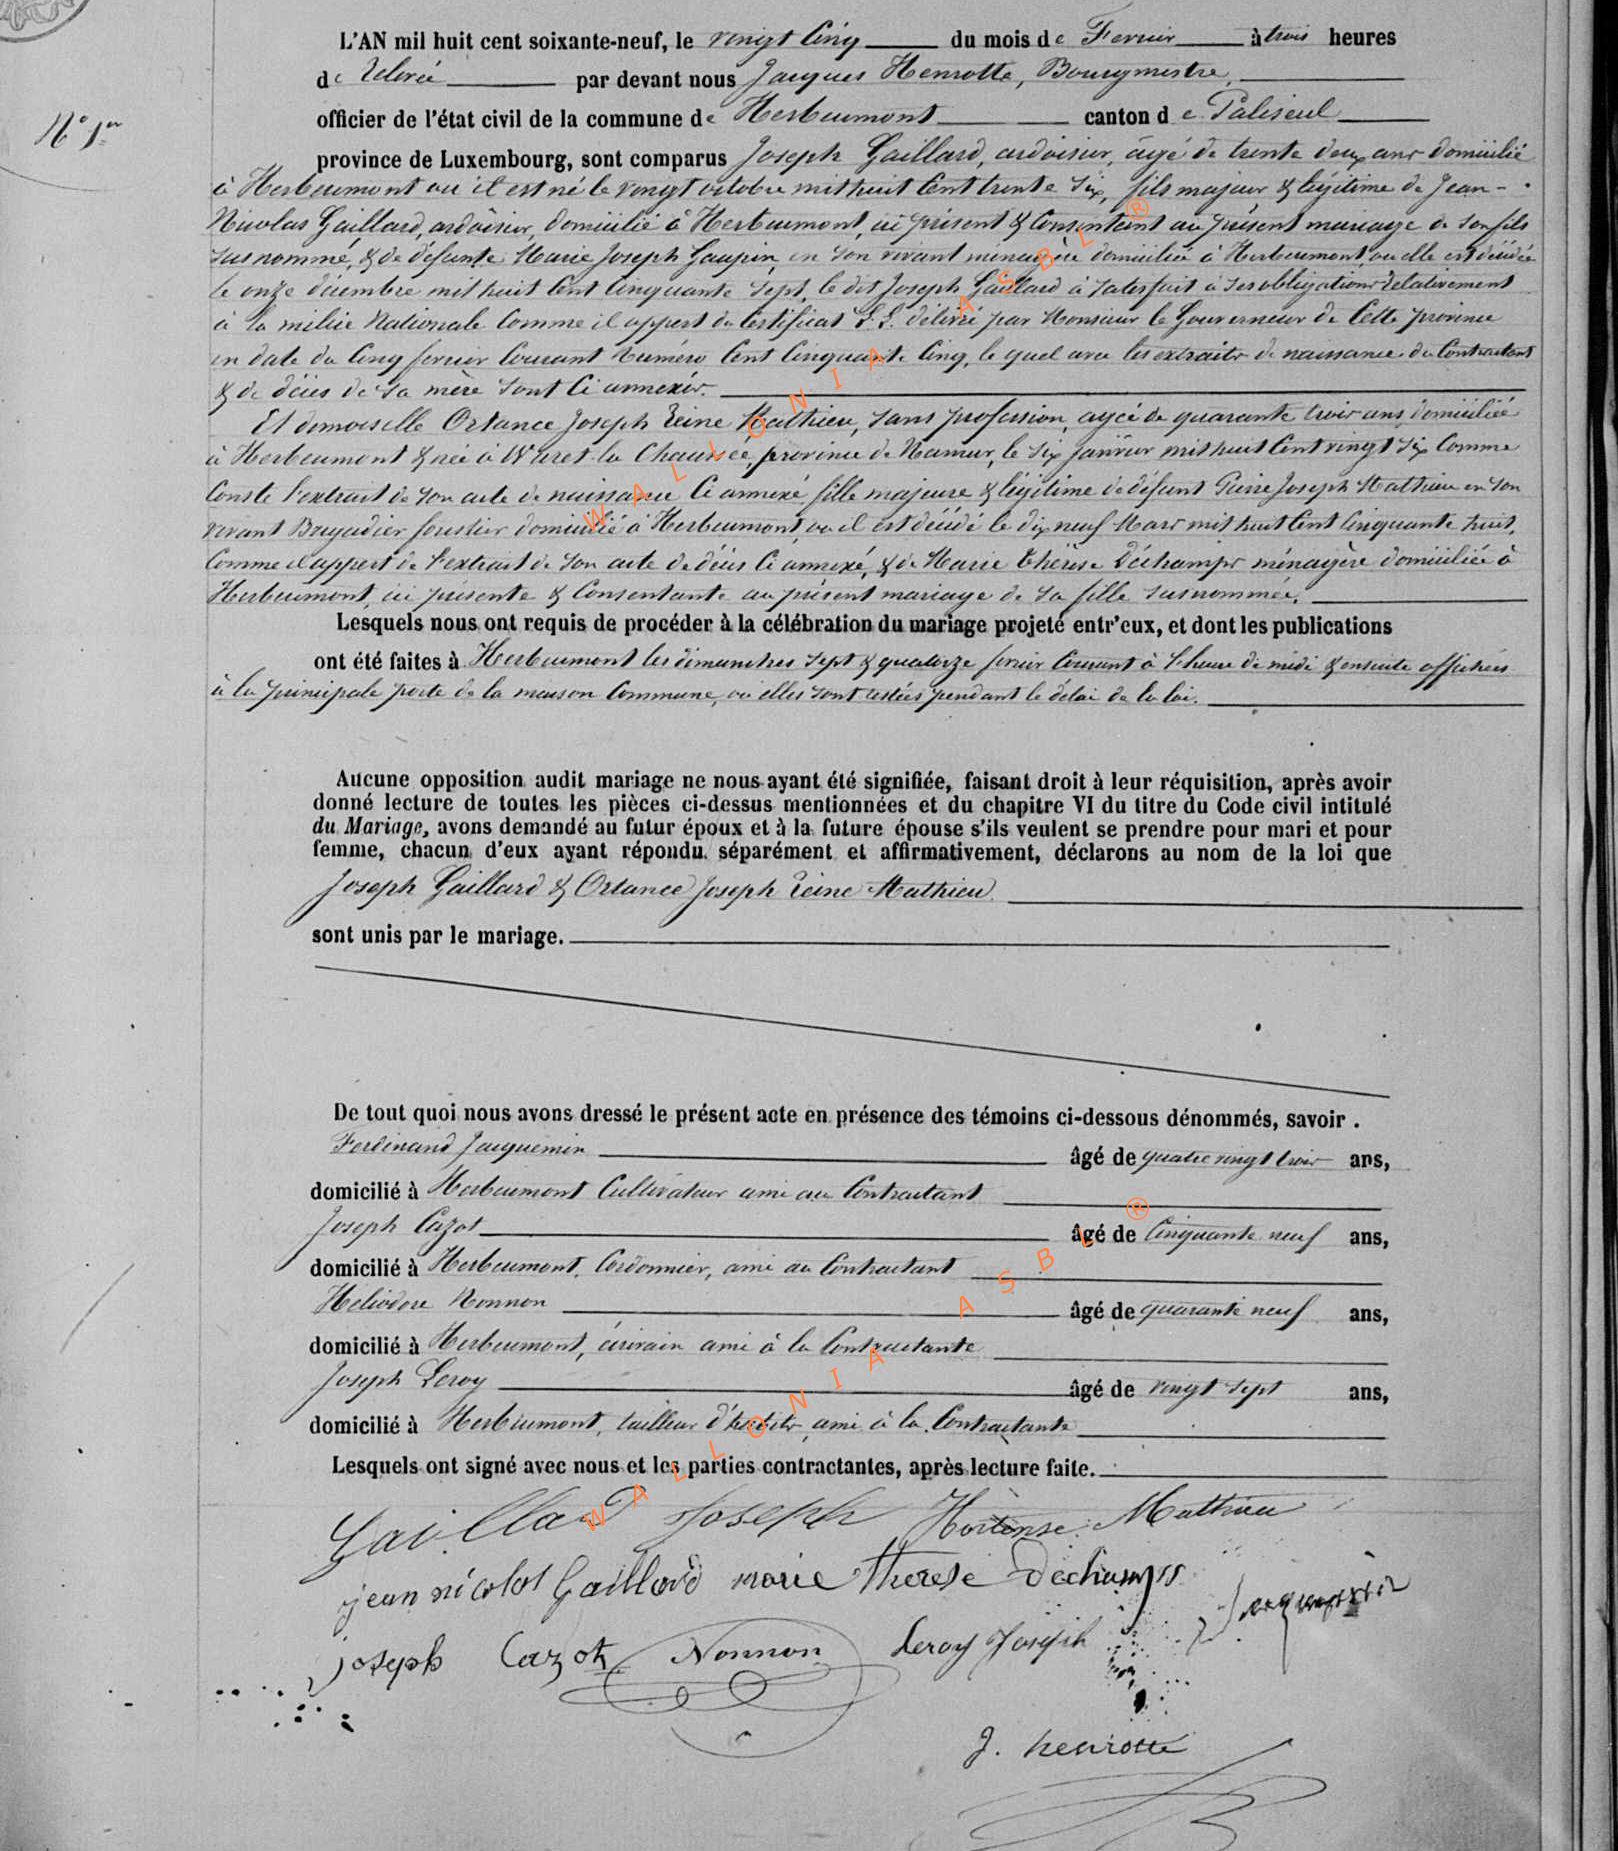 L'AN mil huit cent soixante-neuf, le vingt Cinq du mois de Fevrier à trois heures
de relevée par devant nous Jacques Henrotte, Bourgmestre,
officier de l'état civil de la commune de Herbeumont canton de Paliseul
N° 1er
province de Luxembourg, sont comparus Joseph Gaillard, ardoisier, âgé de trente deux ans domicilié
à Herbeumont où il est né le vingt octobre mil huit Cent trente Six, fils majeur & légitime de Jean-
Nicolas Gaillard, ardoisier, domicilié à Herbeumont, ici présent & Consentant au présent mariage de son fils
susnommé, & de défunte Marie Joseph Gaupin, en son vivant ménagère domiciliée à Herbeumont, où elle est décédée
le onze décembre mil huit Cent Cinquante Sept, le dit Joseph Gaillard à satisfait à ses obligations relativement
à la milice Nationale Comme il appert du Certificat délivré par Monsieur le Gouverneur de Cette province
en date du Cinq fevrier Courant Numéro Cent Cinquante Cinq, le quel avec les extraits de naissance du Contractant
& de décès de sa mère sont Ci annexés.
Et demoiselle Ortance Joseph Reine Mathieu, sans profession, agée de quarante trois ans, domiciliée
à Herbeumont & née à Waret-la Chaussée, province de Namur, le Six Janvier mil huit Cent vingt Six Comme
Conste l'extrait de son acte de naissance Ci annexé, fille majeure & légitime de défunt Pierre Joseph Mathieu en son
vivant Brigadier forestier domicilié à Herbeumont, où il est décédé le dix neuf Mars mil huit Cent Cinquante huit,
Comme il appert de l'extrait de son acte de décès Ci annexé, & de Marie Thérèse Déchamps ménagère domiciliée à
Herbeumont, ici présente & Consentante au présent mariage de sa fille susnommée.
Lesquels nous ont requis de procéder à la célébration du mariage projeté entr'eux, et dont les publications
ont été faites à Herbeumont les dimanches sept & quatorze fevrier Courant à l'heure de midi & ensuite affichées
à la principale porte de la maison Commune, où elles sont restées pendant le délai de la loi.
Aucune opposition audit mariage ne nous ayant été signifiée, faisant droit à leur réquisition, après avoir
donné lecture de toutes les pièces ci-dessus mentionnées et du chapitre VI du titre du Code civil intitulé
du Mariage, avons demandé au futur époux et à la future épouse s'ils veulent se prendre pour mari et pour
femme, chacun d'eux ayant répondu séparément et affirmativement, déclarons au nom de la loi que
Joseph Gaillard & Ortance Joseph Reine Mathieu
sont unis par le mariage.
De tout quoi nous avons dressé le présent acte en présence des témoins ci-dessous dénommés, savoir.
Ferdinand Jacquemin âgé de quatre vingt trois ans,
domicilié à Herbeumont Cultivateur ami au Contractant
Joseph Cazot âgé de Cinquante neuf ans,
domicilié à Herbeumont, Cordonnier, ami au Contractant
Héliodore Nonnon âgé de quarante neuf ans,
domicilié à Herbeumont, écrivain ami à la Contractante
Joseph Leroy âgé de vingt sept ans,
domicilié à Herbeumont, tailleur d'habits, ami à la Contractante
Lesquels ont signé avec nous et les parties contractantes, après lecture faite.
Gaillard Joseph Hortense Mathieu
jean nicolas Gaillard marie therese dechamps
Jacquemin
joseph Cazot Nonnon Leroy Joseph
J. henrotte
WALLONIA ASBL ®
WALLONIA ASBL ®